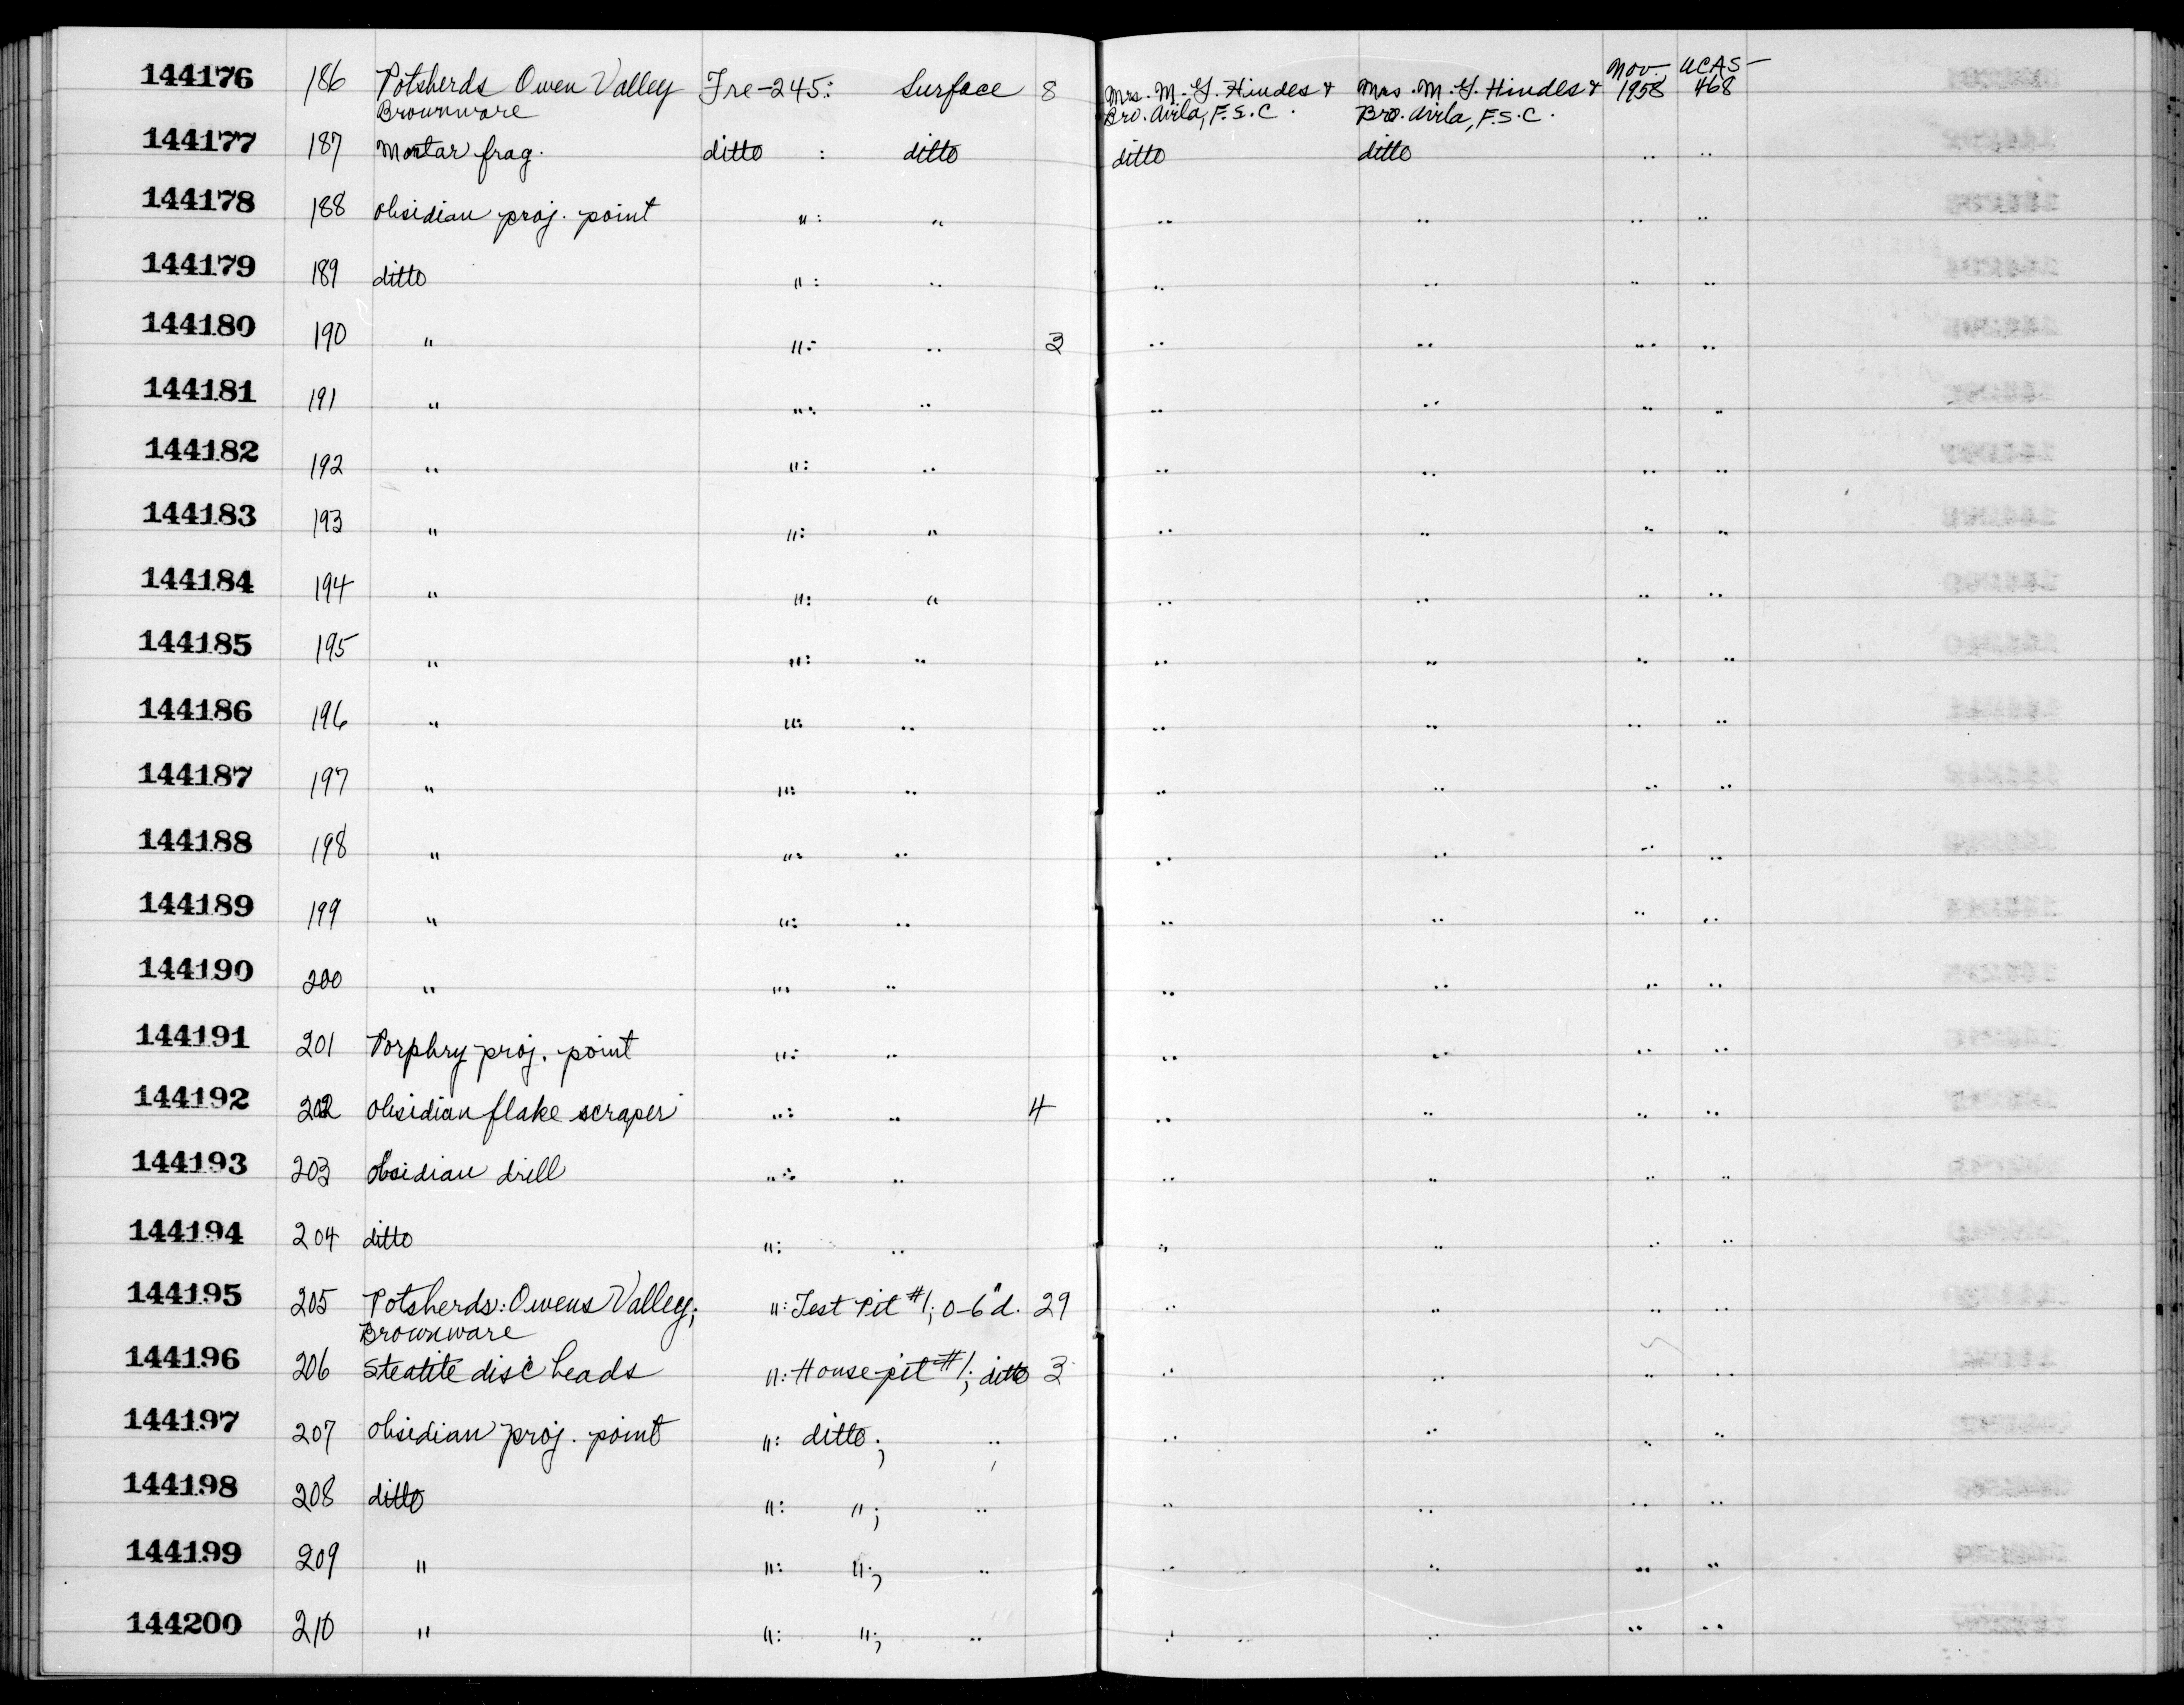 144176 186 Potsherds Owen Valley Fre-245: Surface 8 Mrs. M. G. Hindes & Mrs. M. G. Hindes & Nov. 1958 UCAS- 468
Brownware Bro. Avila, F.S.C. Bro. Avila, F.S.C.
144177 187 Mortar frag. ditto : ditto ditto ditto " "
144178 188 obsidian proj. point " : " " " " "
144179 189 ditto " : " " " " "
144180 190 " " : " 3 " " " "
144181 191 " " : " " " " "
144182 192 " " : " " " " "
144183 193 " " : " " " " "
144184 194 " " : " " " " "
144185 195 " " : " " " " "
144186 196 " " : " " " " "
144187 197 " " : " " " " "
144188 198 " " : " " " " "
144189 199 " " : " " " " "
144190 200 " " : " " " " "
144191 201 Porphry proj. point " : " " " " "
144192 202 obsidian flake scraper " : " 4 " " " "
144193 203 obsidian drill " : " " " " "
144194 204 ditto " : " " " " "
144195 205 Potsherds: Owens Valley; " : Test Pit #1; 0-6" d. 29 " " " "
Brownware
144196 206 Steatite disc beads " : House-pit #1; ditto 3 " " " "
144197 207 obsidian proj. point " : ditto; " " " " "
144198 208 ditto " : "; " " " " "
144199 209 " " : "; " " " " "
144200 210 " " : "; " " " " "